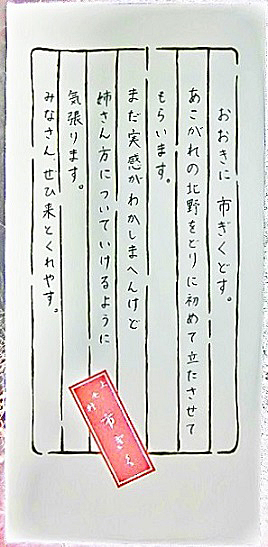 おおきに 市ぎくどす。
あこがれの北野をどりに初めて立たさせて
もらいます。
まだ実感がわかしまへんけど
姉さん方についていけるように
気張ります。
みなさん、ぜひ来とくれやす。
上七軒
市ぎく